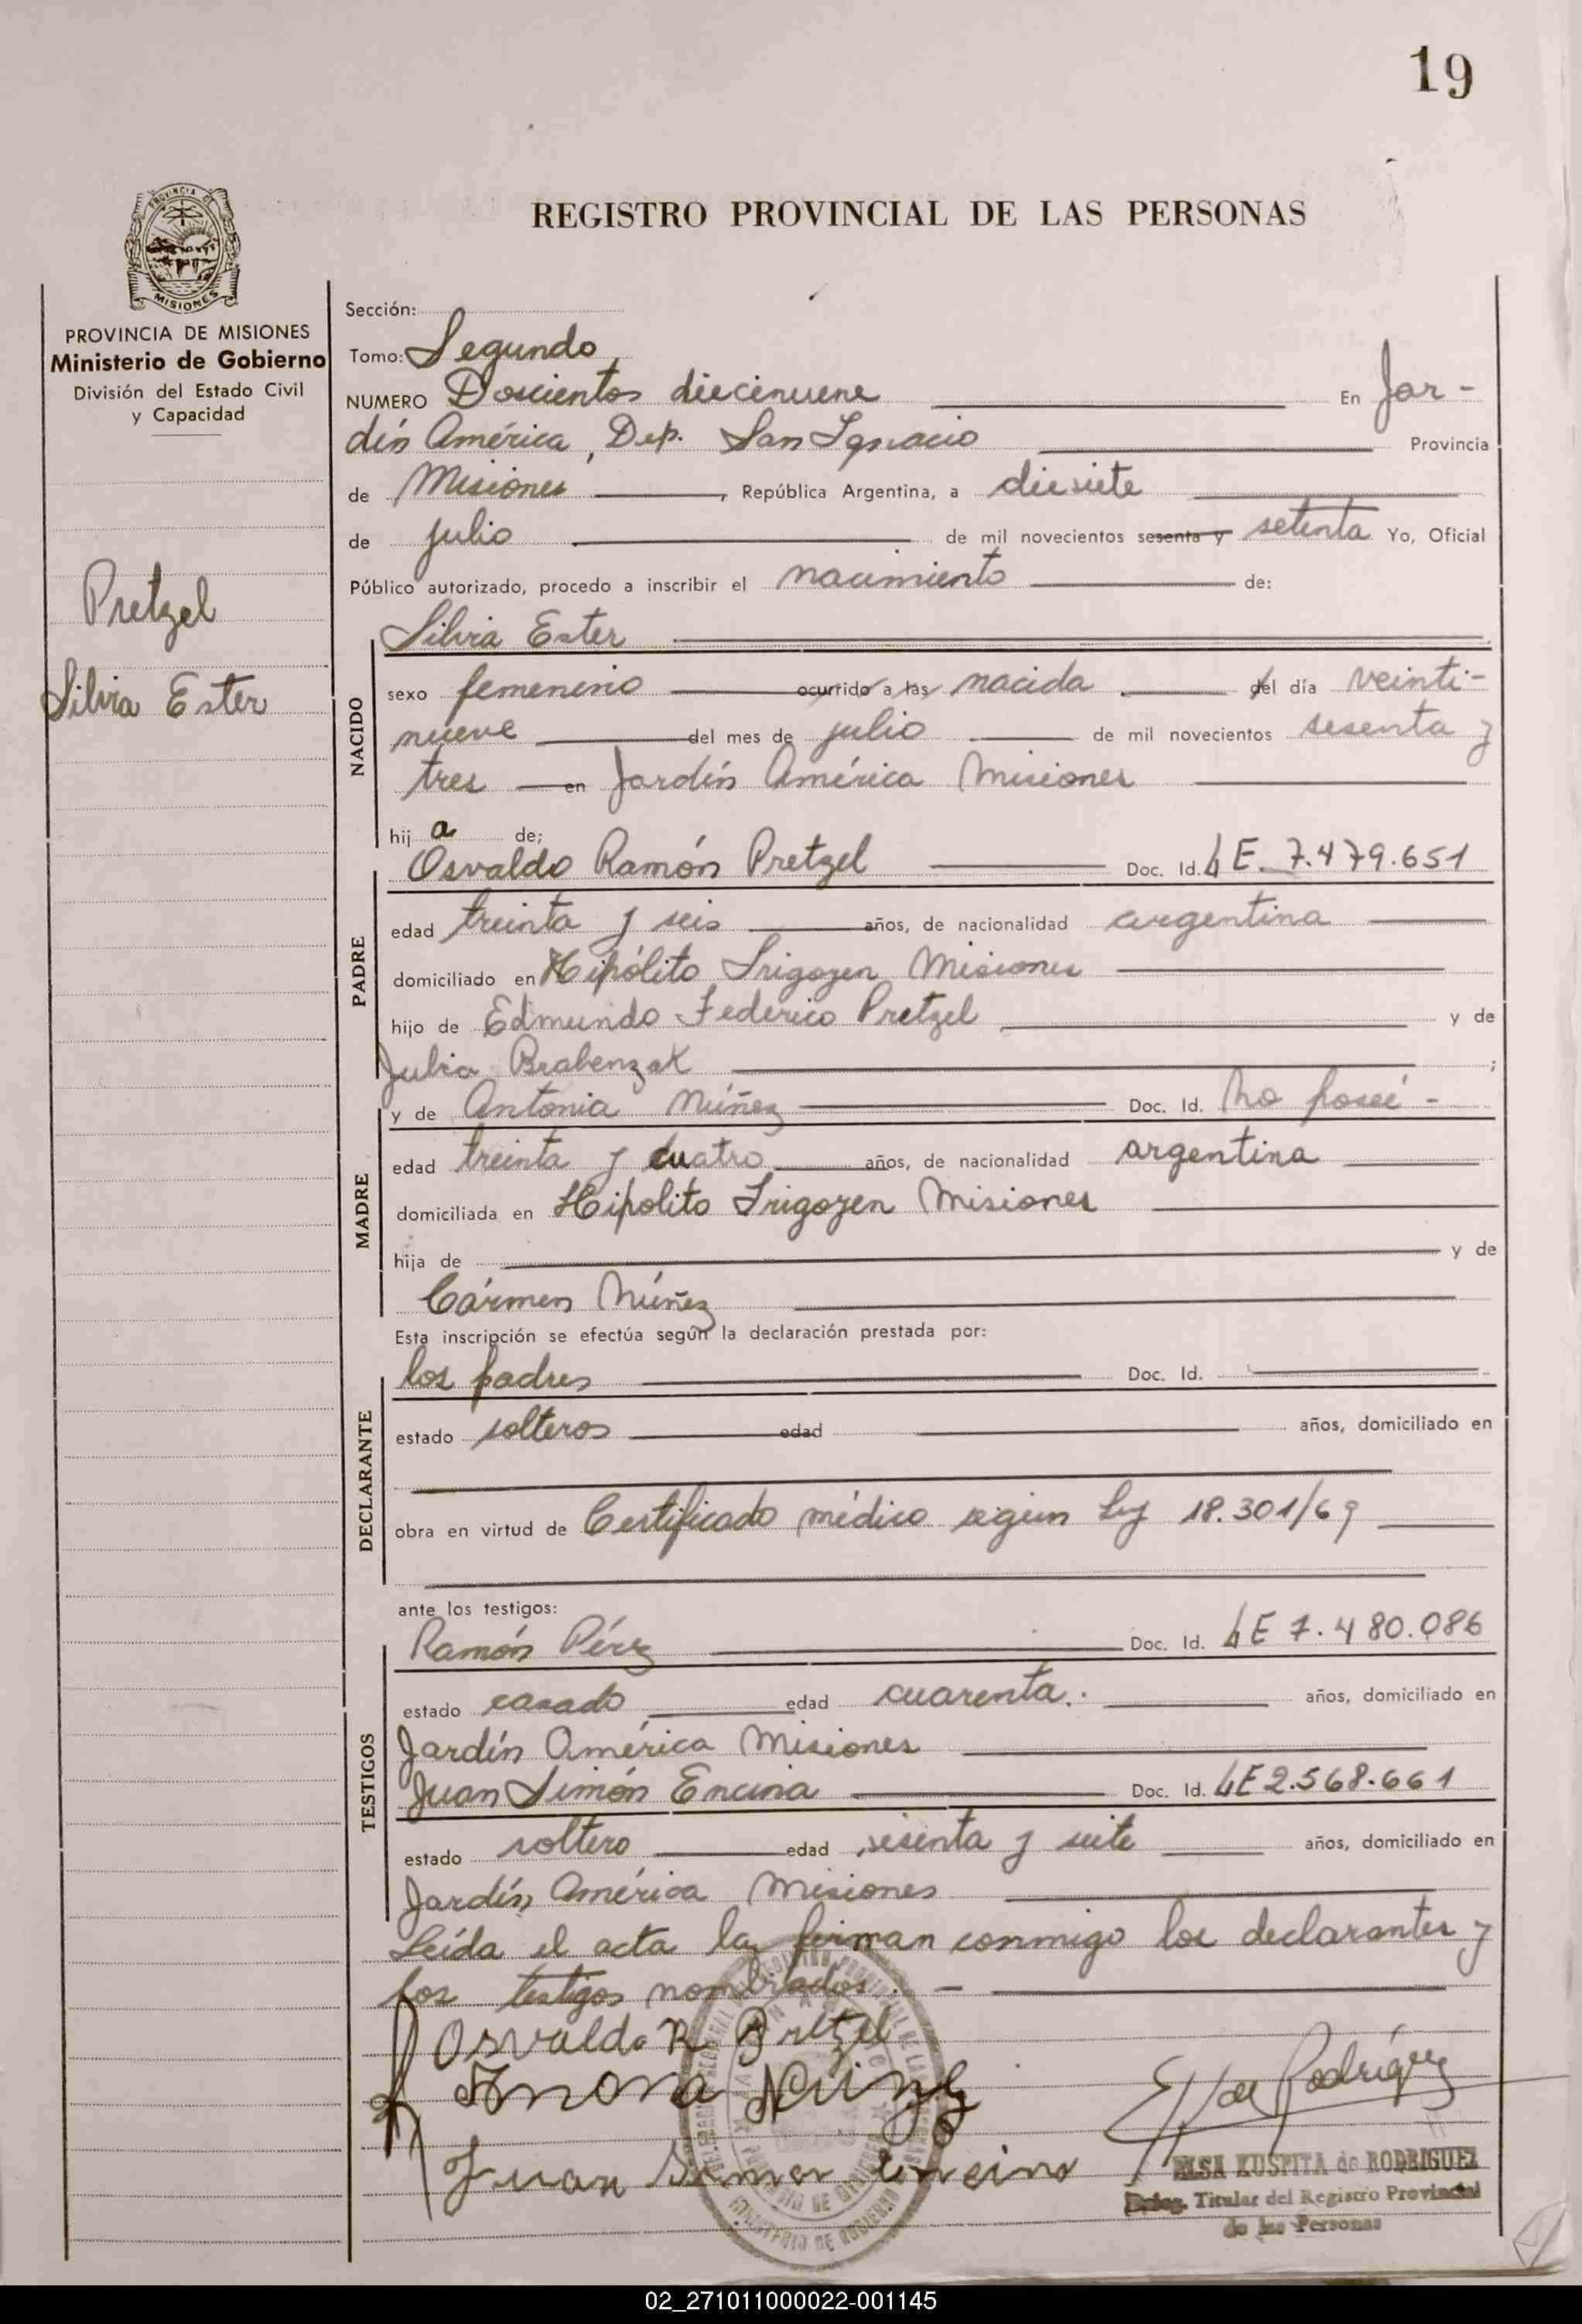 19
PROVINCIA DE
MISIONES
REGISTRO PROVINCIAL DE LAS PERSONAS
PROVINCIA DE MISIONES
Ministerio de Gobierno
División del Estado Civil
y Capacidad
Pretzel
Silvia Ester
Sección:
Tomo: Segundo
NUMERO Doscientos diecinueve En Jar-
dín América, Dep. San Ignacio Provincia
de Misiones, República Argentina, a diesiete
de julio de mil novecientos sesenta y setenta Yo, Oficial
Público autorizado, procedo a inscribir el nacimiento de:
Silvia Ester
NACIDO
sexo femenino ocurrido a las nacida del día veinti-
nueve del mes de julio de mil novecientos sesenta y
tres en Jardín América Misiones
hija de;
PADRE
Osvaldo Ramón Pretzel Doc. Id. LE. 7.479.651
edad treinta y seis años, de nacionalidad argentina
domiciliado en Hipólito Irigoyen Misiones
hijo de Edmundo Federico Pretzel y de
Julia Brabenzak ;
MADRE
y de Antonia Núñez Doc. Id. No poseé -
edad treinta y cuatro años, de nacionalidad argentina
domiciliada en Hipolito Irigoyen Misiones
hija de y de
Cármen Núñez
Esta inscripción se efectúa según la declaración prestada por:
DECLARANTE
los padres Doc. Id.
estado solteros edad años, domiciliado en
obra en virtud de Certificado médico según Ley 18.301/69
ante los testigos:
TESTIGOS
Ramón Pérez Doc. Id. LE 7.480.086
estado casado edad cuarenta. años, domiciliado en
Jardín América Misiones
Juan Simón Encina Doc. Id. LE 2.568.661
estado soltero edad sesenta y siete años, domiciliado en
Jardín América Misiones
Leída el acta la firman conmigo los declarantes y
los testigos nombrados. -
Osvaldo R Pretzel
Núñez
Juan Encina
Elsa Rodríguez
ELSA KUSPITA de RODRIGUEZ
Deleg. Titular del Registro Provincial
de las Personas
MINISTERIO DE GOBIERNO
02_271011000022-001145